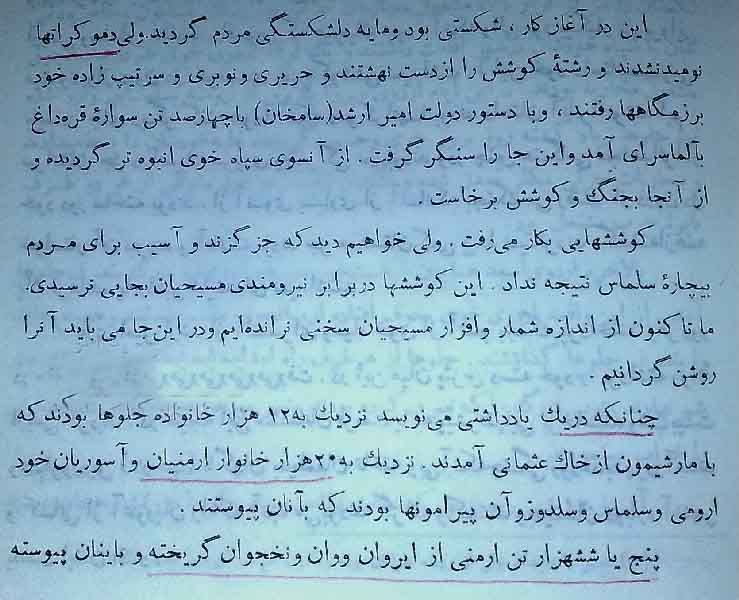 این در آغاز کار، شکستی بود ومایه دلشکستگی مردم گردید.ولی دمو کراتها
نومیدنشدند و رشتهٔ کوشش را ازدست نهشتند و حریری ونوبری و سرتیپ زاده خود
برزمگاهها رفتند، وبا دستور دولت امیر ارشد(سامخان) باچهارصد تن سوارهٔ قره‌داغ
بآلماسرای آمد واین جا را سنگر گرفت. از آنسوی سپاه خوی انبوه تر گردیده و
از آنجا بجنگ و کوشش برخاست.
کوششهایی بکار می‌رفت. ولی خواهیم دید که جز گزند و آسیب برای مردم
بیچارهٔ سلماس نتیجه نداد. این کوششها دربرابر نیرومندی مسیحیان بجایی نرسیدی.
ما تاکنون از اندازه شمار وافزار مسیحیان سخنی نرانده‌ایم ودر این‌جا می باید آنرا
روشن گردانیم.
چنانکه دریك یادداشتی می‌نویسد نزدیك به۱۲ هزار خانواده جلوها بودند که
با مارشیمون ازخاك عثمانی آمدند. نزدیك به۲۰هزار خانوار ارمنیان وآسوریان خود
ارومی وسلماس وسلدوزوآن پیرامونها بودند که بآنان پیوستند.
پنج یا ششهزار تن ارمنی از ایروان ووان ونخجوان گریخته و باینان پیوسته